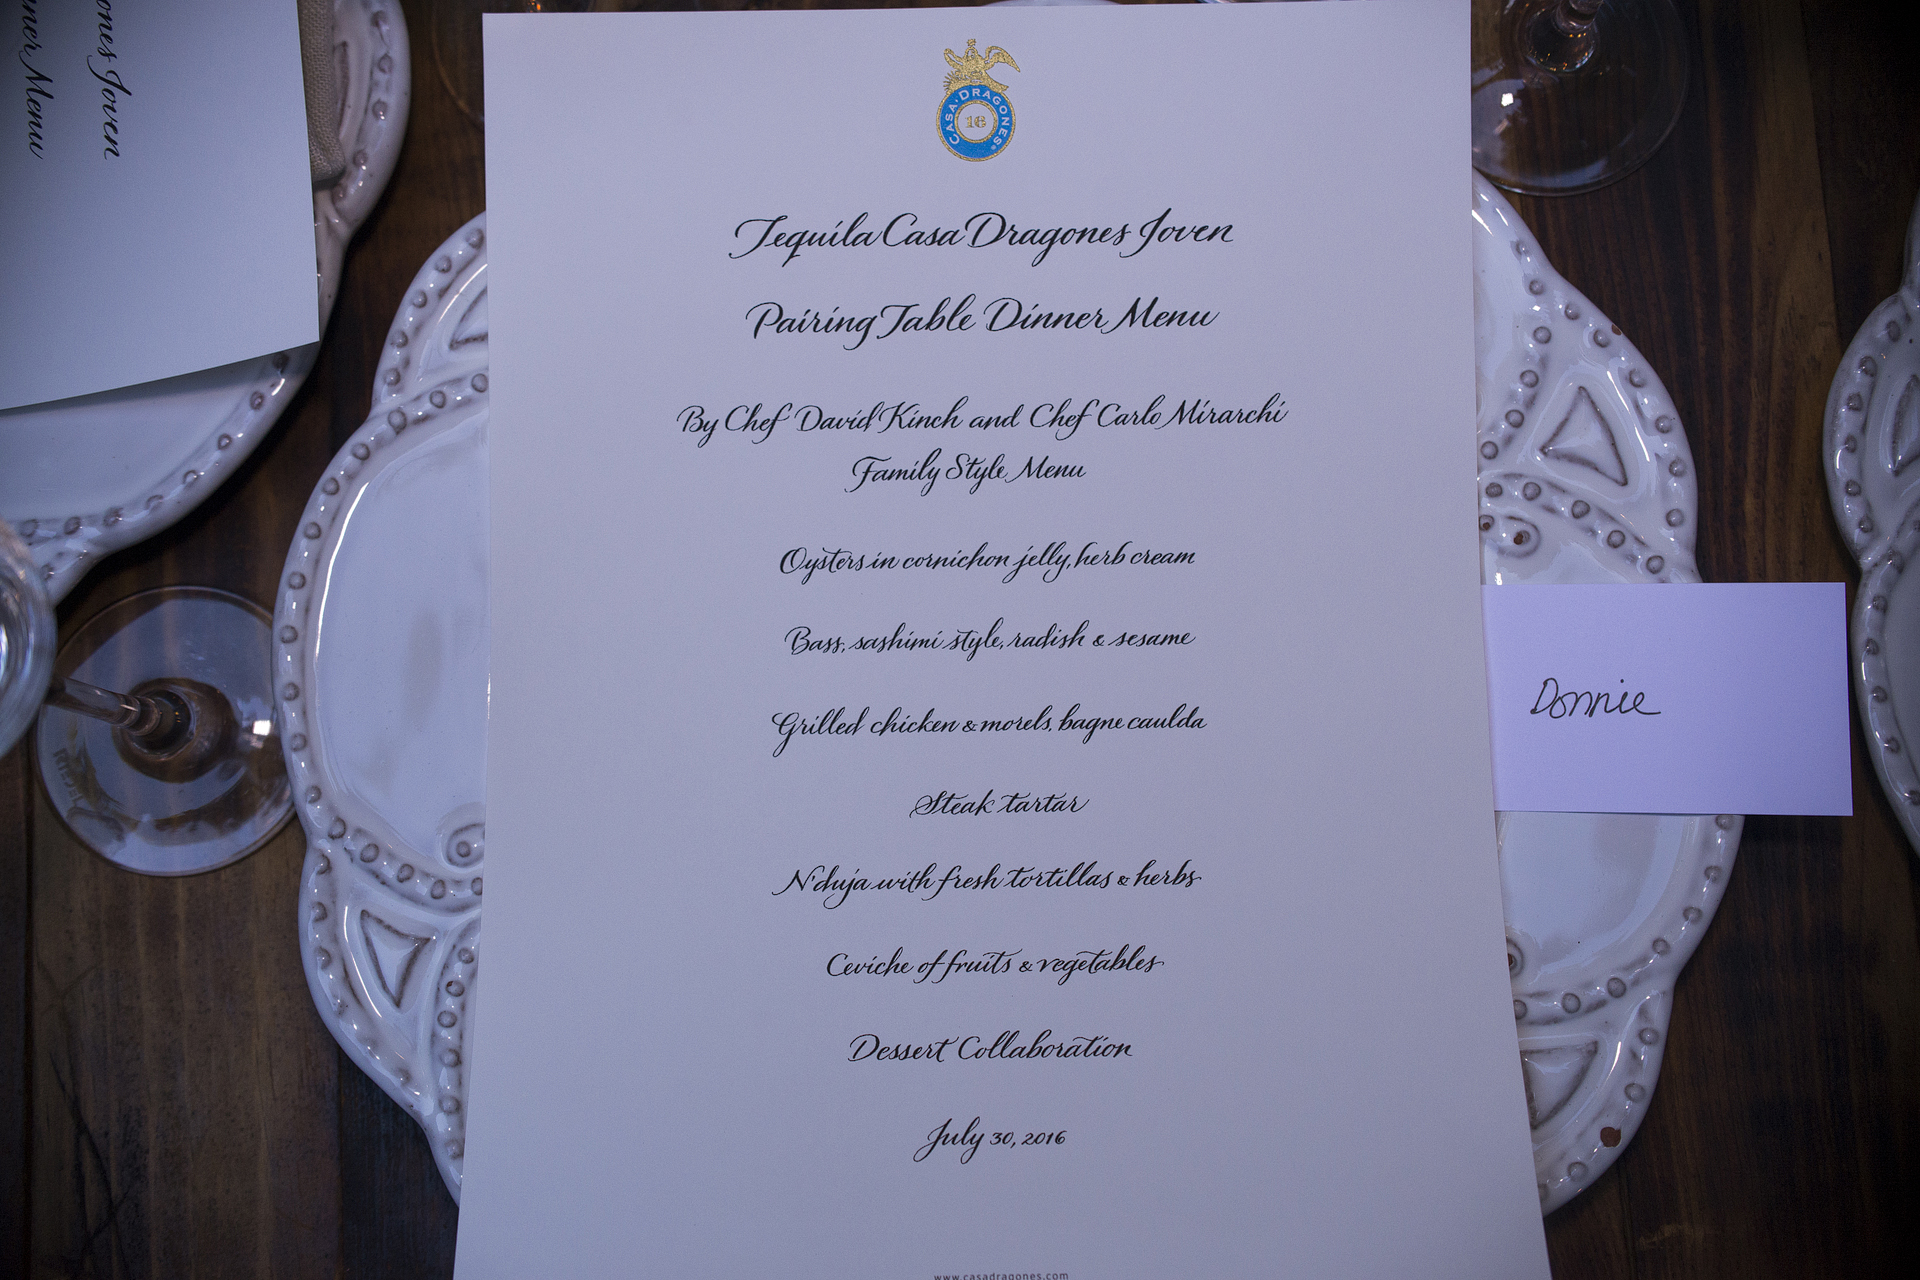 ones Joven
ner Menu
CASA DRAGONES
16
Tequila Casa Dragones Joven
Pairing Table Dinner Menu
By Chef David Kinch and Chef Carlo Mirarchi
Family Style Menu
Oysters in cornichon jelly, herb cream
Bass, sashimi style, radish & sesame
Grilled chicken & morels, bagne caulda
Steak tartar
N'duja with fresh tortillas & herbs
Ceviche of fruits & vegetables
Dessert Collaboration
July 30, 2016
www.casadragones.com
Donnie
RIEDEL